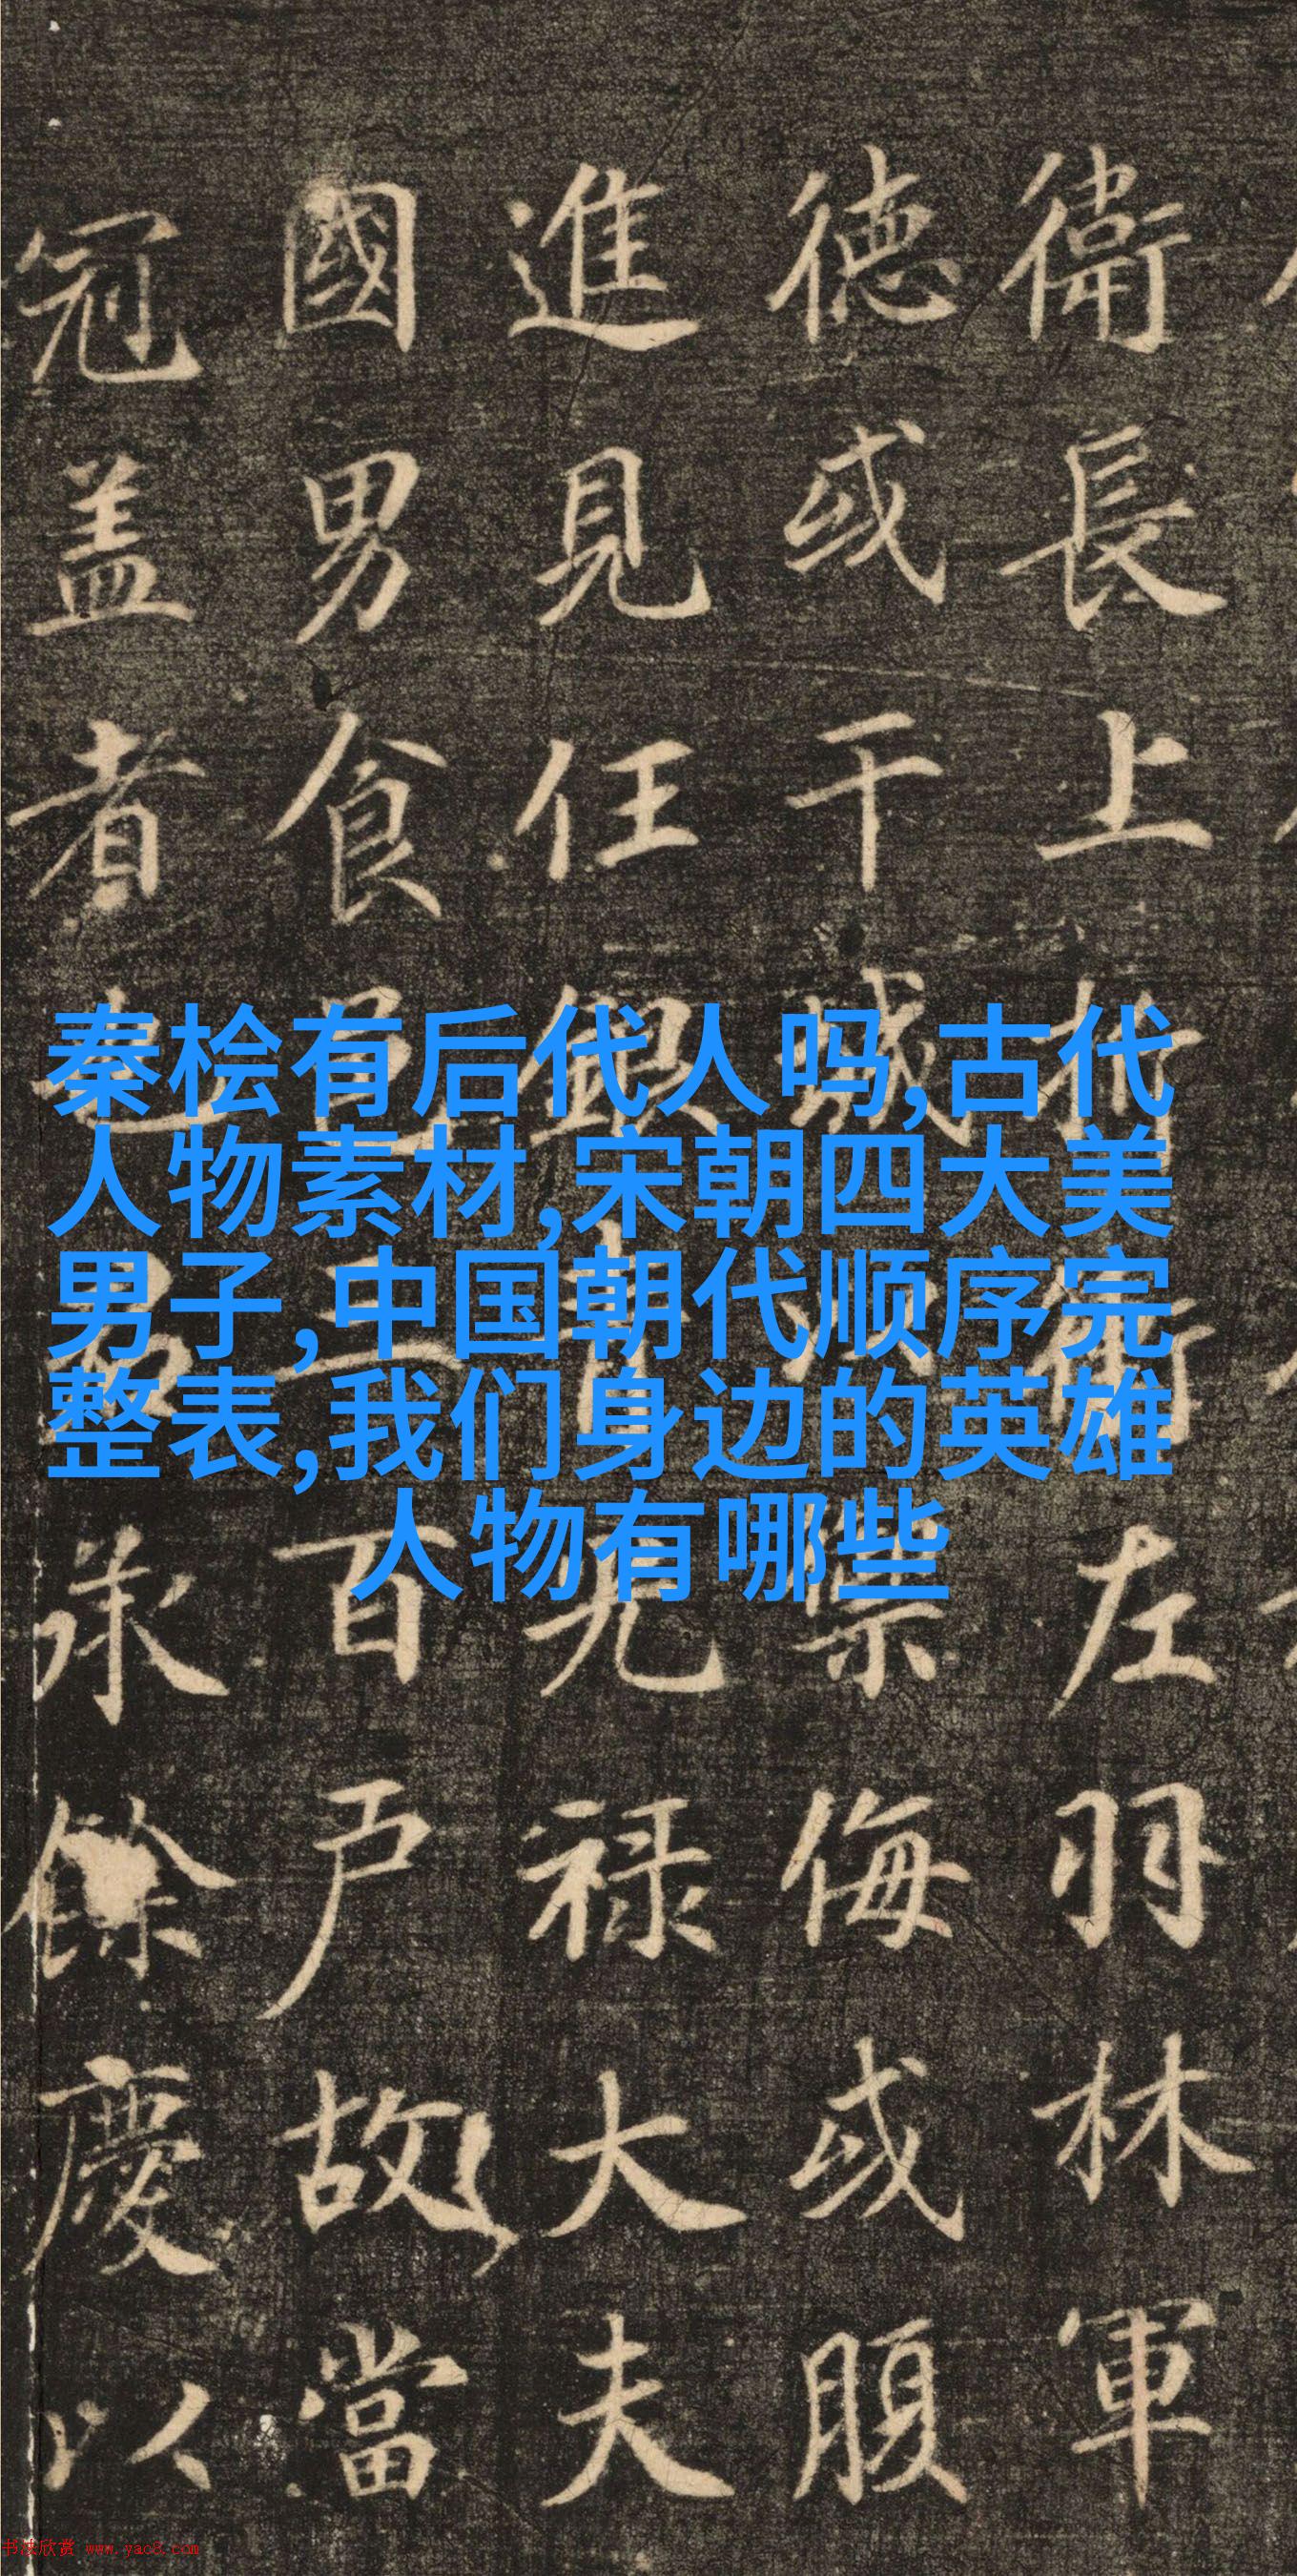 衞長上折衝左羽林軍
德或干城禦侮或腹
進見任銀青光禄大夫
國男食邑三百户故當
冠盖者也承餘慶以
秦桧有后代人吗,古代
人物素材,宋朝四大美
男子,中国朝代顺序完
整表,我们身边的英雄
人物有哪些
书法欣赏 www.yac8.com